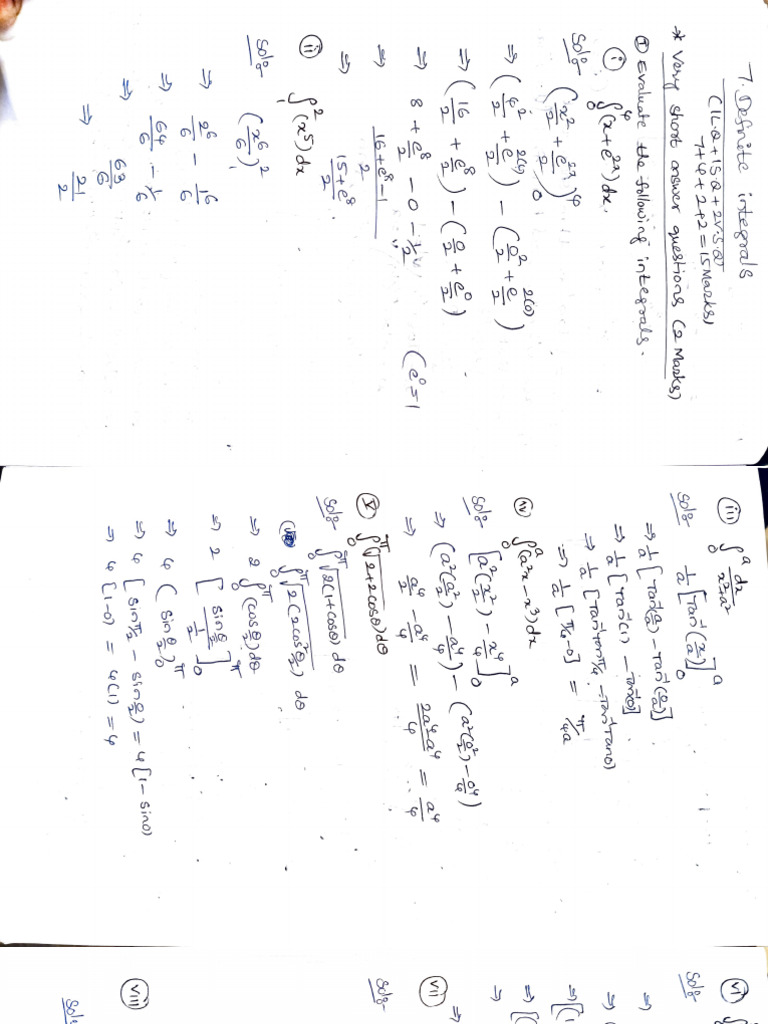 7. Definite integrals
(1L.Q + 1S.Q + 2V.S.Q)
7+4+2+2 = 15 Marks)
* Very short answer questions (2 Marks)
① Evaluate the following integrals.
(i) ∫₀⁴ (x + e^{2x}) dx.
Sol:- (x²/2 + e^{2x}/2)₀⁴
⇒ (4²/2 + e^{2(4)}/2) − (0²/2 + e^{2(0)}/2)
⇒ (16/2 + e⁸/2) − (0/2 + e⁰/2)
⇒ 8 + e⁸/2 − 0 − 1/2 (e⁰ = 1
⇒ 16 + e⁸ − 1 / 2
⇒ 15 + e⁸ / 2
(ii) ∫₁² (x⁵) dx
Sol:- (x⁶/6)₁²
⇒ 2⁶/6 − 1⁶/6
⇒ 64/6 − 1/6
⇒ 63/6
⇒ 21/2
(iii) ∫₀ᵃ dx / x²+a²
Sol:- 1/a [Tan⁻¹(x/a)]₀ᵃ
⇒ 1/a [Tan⁻¹(a/a) − Tan⁻¹(0/a)]
⇒ 1/a [Tan⁻¹(1) − Tan⁻¹(0)]
⇒ 1/a [Tan⁻¹tanπ/4 − Tan⁻¹Tan0)
⇒ 1/a [π/4 − 0] = π/4a
(iv) ∫₀ᵃ (a²x − x³) dx
Sol:- [a²(x²/2) − x⁴/4]₀ᵃ
⇒ (a²(a²/2) − a⁴/4) − (a²(0²/2) − 0⁴/4)
⇒ a⁴/2 − a⁴/4 = 2a⁴−a⁴/4 = a⁴/4
(v) ∫₀^π √(2+2cosθ) dθ
Sol:- ∫₀^π √(2(1+cosθ)) dθ
∫₀^π √(2(2cos²θ/2)) dθ
⇒ 2 ∫₀^π (cosθ/2) dθ
⇒ 2 [sinθ/2 / 1/2]₀^π
⇒ 4 (sinθ/2)₀^π
⇒ 4 [sinπ/2 − sin0/2) = 4 [1 − sin0)
⇒ 4 [1−0) = 4(1) = 4
(vi)
Sol:-
(vii)
Sol:-
(viii)
Sol:-